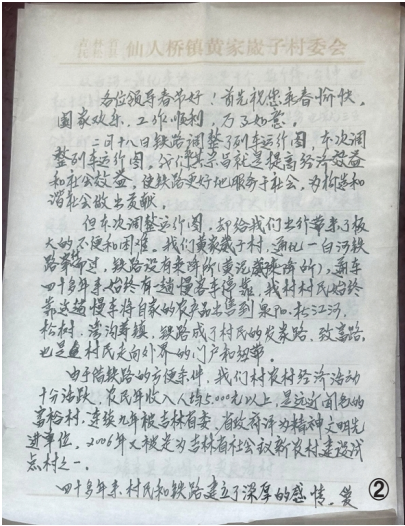 吉林省
仙人桥镇黄家崴子村委会
各位领导春节好！首先祝您新春愉快，
阖家欢乐，工作顺利，万事如意。
二月十八日铁路调整了列车运行图，本次调
整列车运行图，我们其宗旨就是提高经济效益
和社会效益，使铁路更好地服务于社会，为构造和
谐社会做出贡献。
但本次调整运行图，却给我们出行带来了极
大的不便和困难。我们黄家崴子村，通化一白河铁
路穿过，铁路没有乘降所，通车
四十多年来始终有一趟慢客车停靠，我村村民始终
靠这趟慢车将自家的农产品出售到泉阳、松江河、
松树、湾沟等镇，铁路成了村民的发家路、致富路，
也是村民走向外界的门户和纽带。
由于借铁路的方便条件，我们村农村经济活动
十分活跃，农民年收入人均5,000元以上，是远近闻名的
富裕村，连续九年被吉林省委、省政府评为精神文明先
进单位，2006年又被定为吉林省社会主义新农村建设试
点村之一。
四十多年来村民和铁路建立了深厚的感情，爱
②